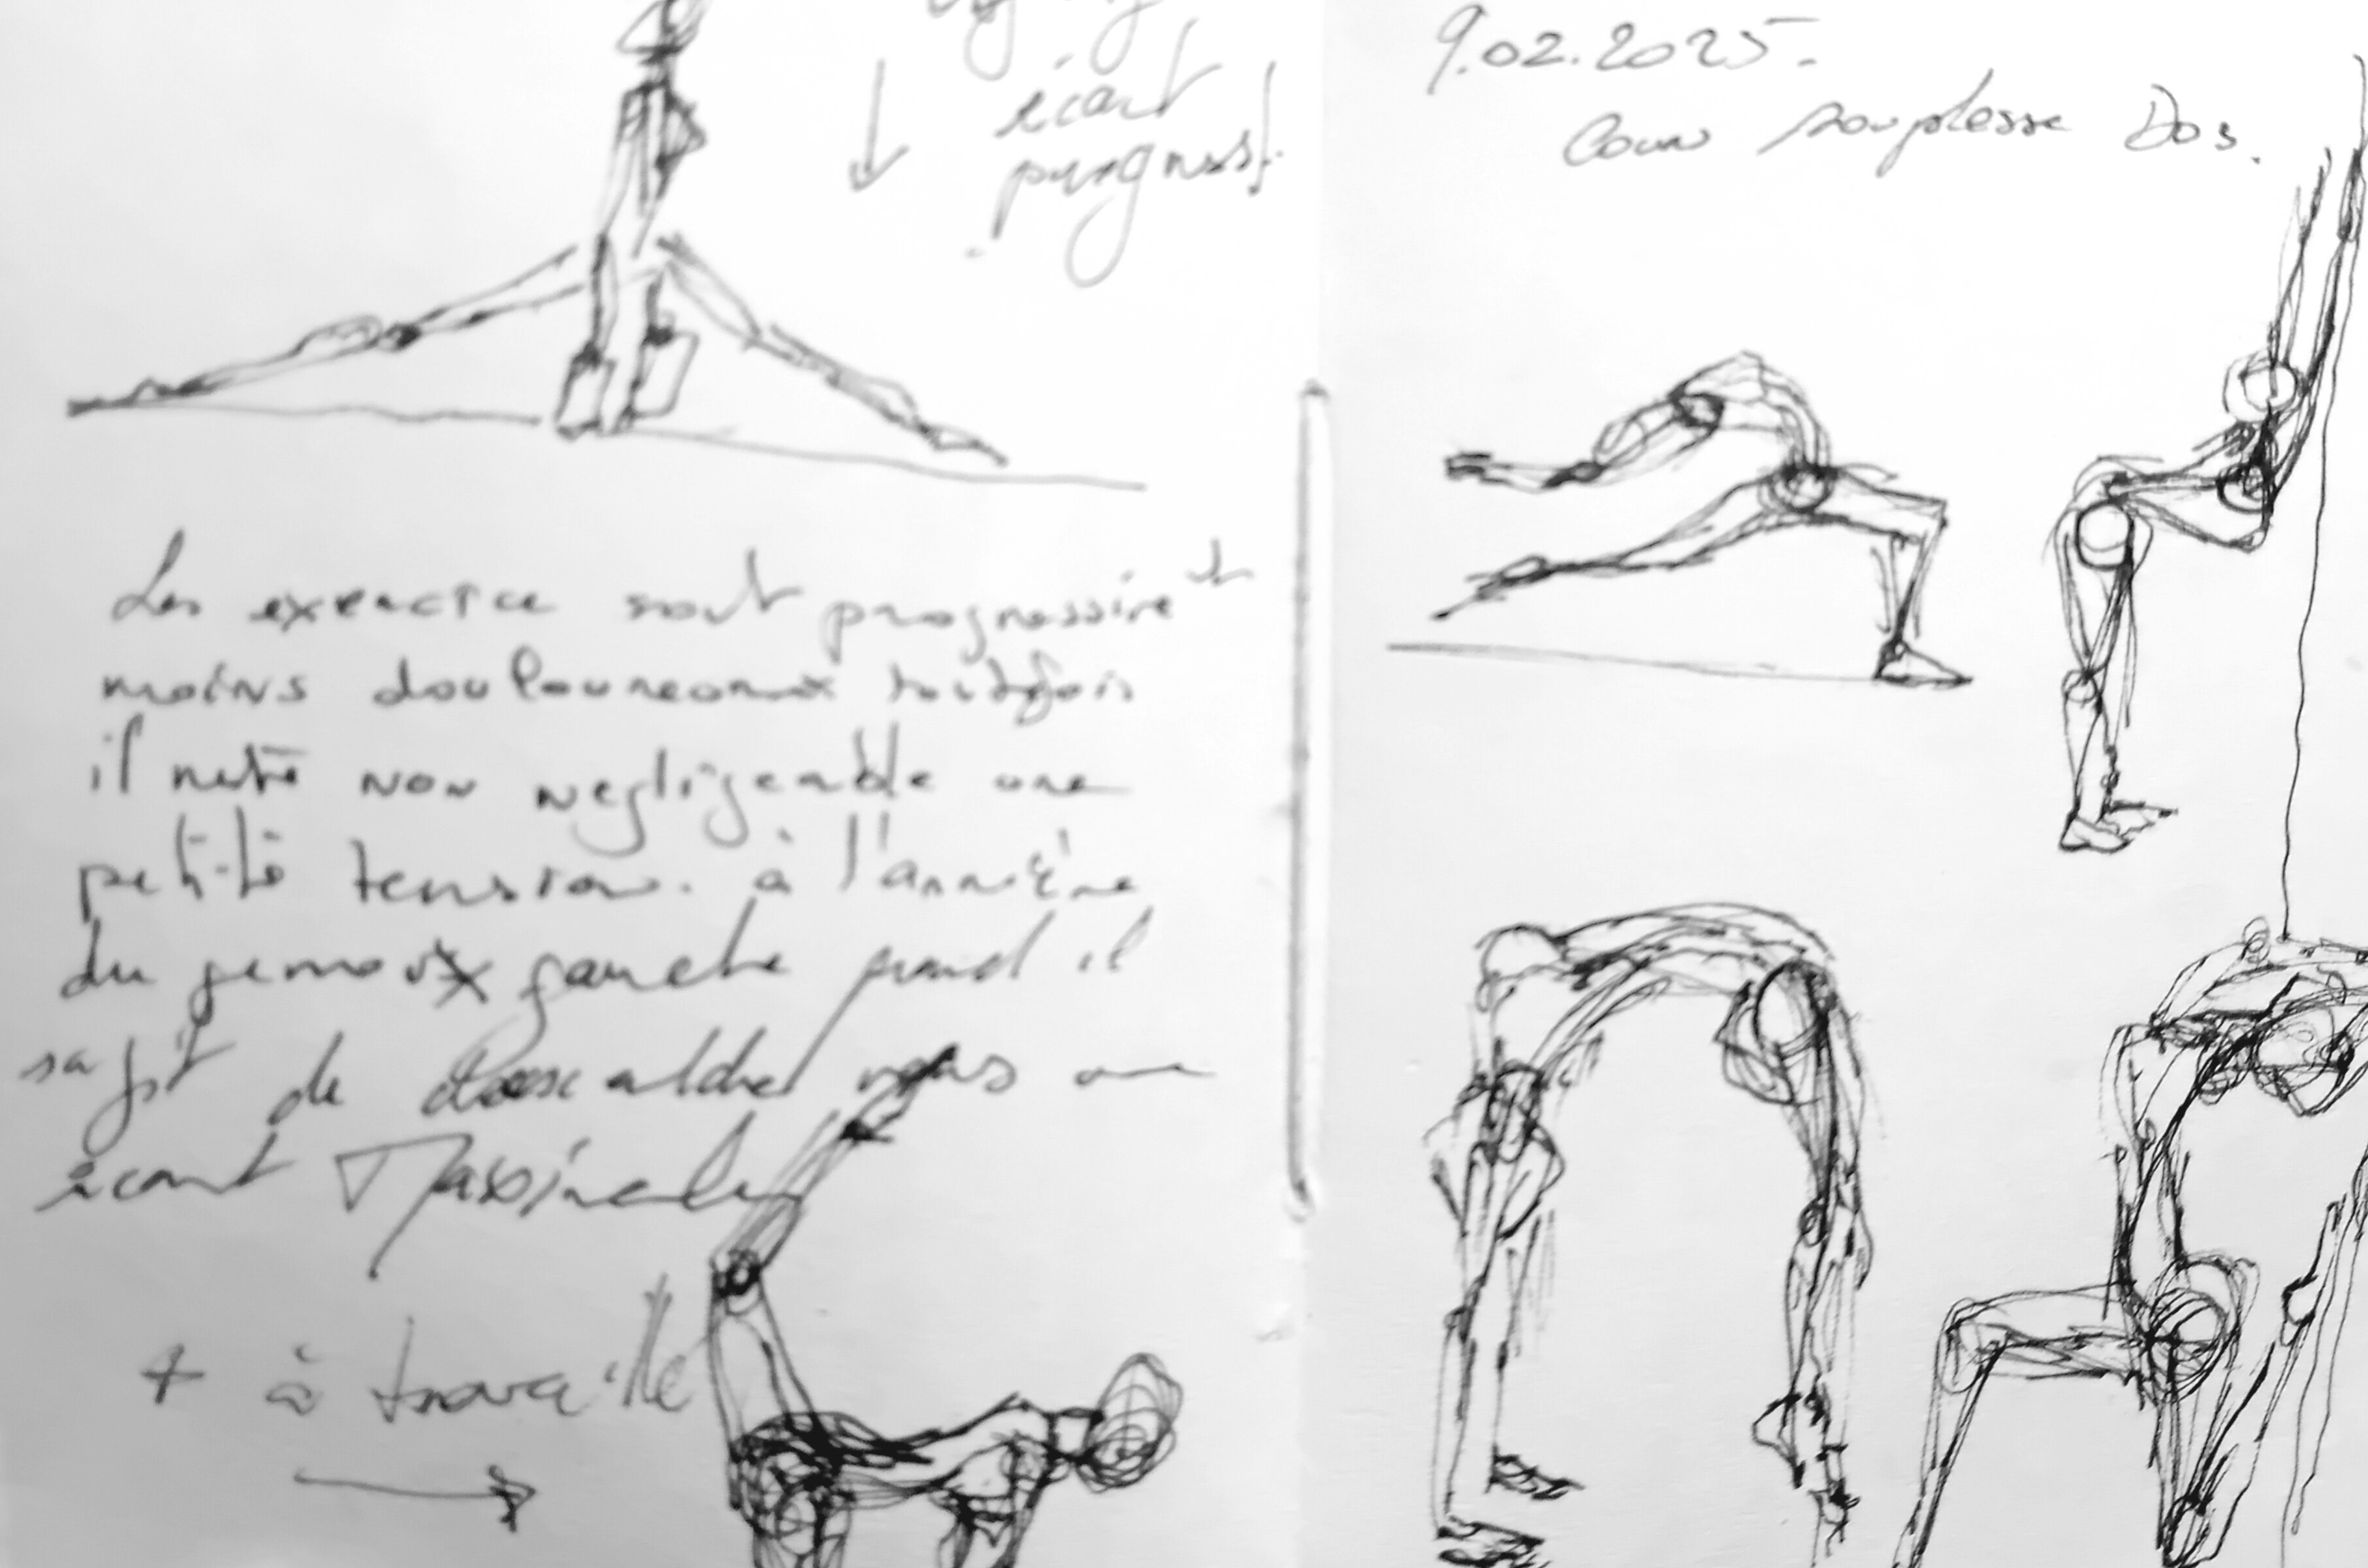 écart
progress!
Les exercice sont progressivet
moins douloureux toutefois
il reste non negligeable une
petite tension. à l'arrière
du genoux gauche quand il
sagit de vers une
écart
+ à travaille
9.02.2025.
Cour souplesse Dos.